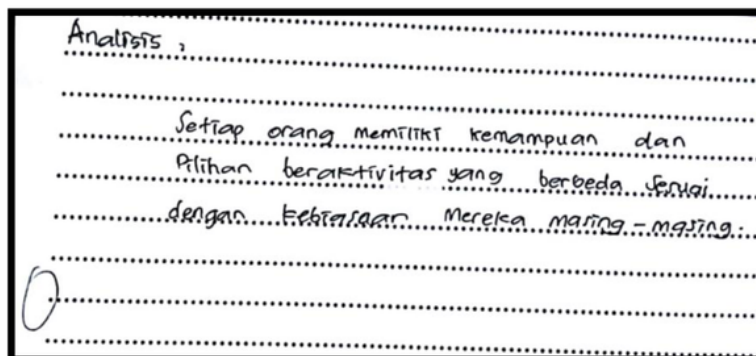 Analisis,
Setiap orang memiliki kemampuan dan
Pilihan beraktivitas yang berbeda sesuai
dengan kebiasaan mereka masing-masing.